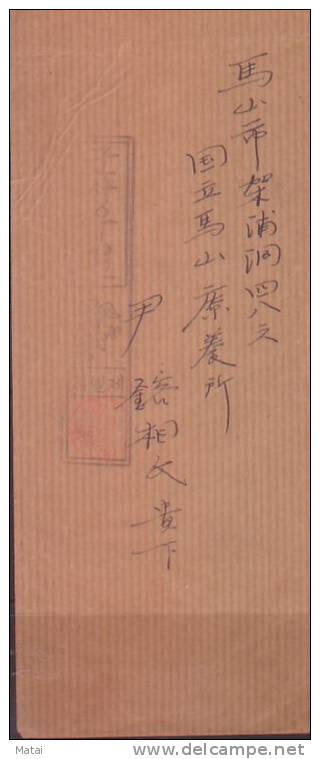 馬山市架浦洞四八之
国立馬山療養所
尹
鎔相 父 貴下
Matai
www.delcampe.net